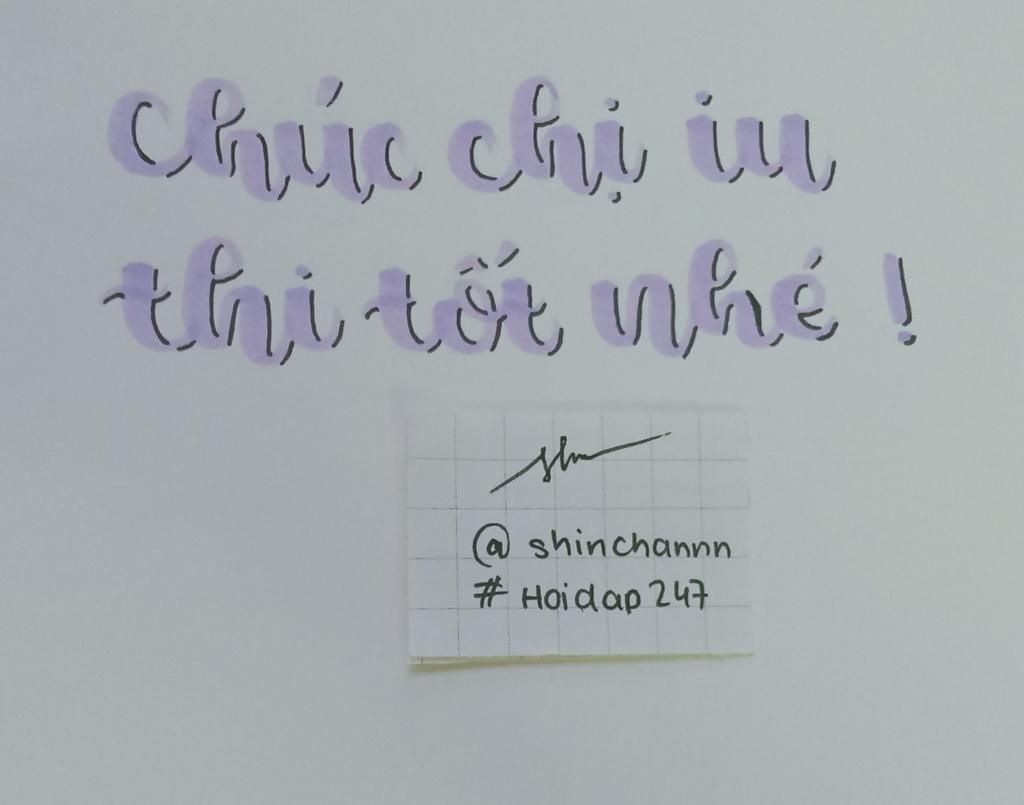 Chúc chị iu
thi tốt nhé !
@ shinchannn
# Hoidap 247